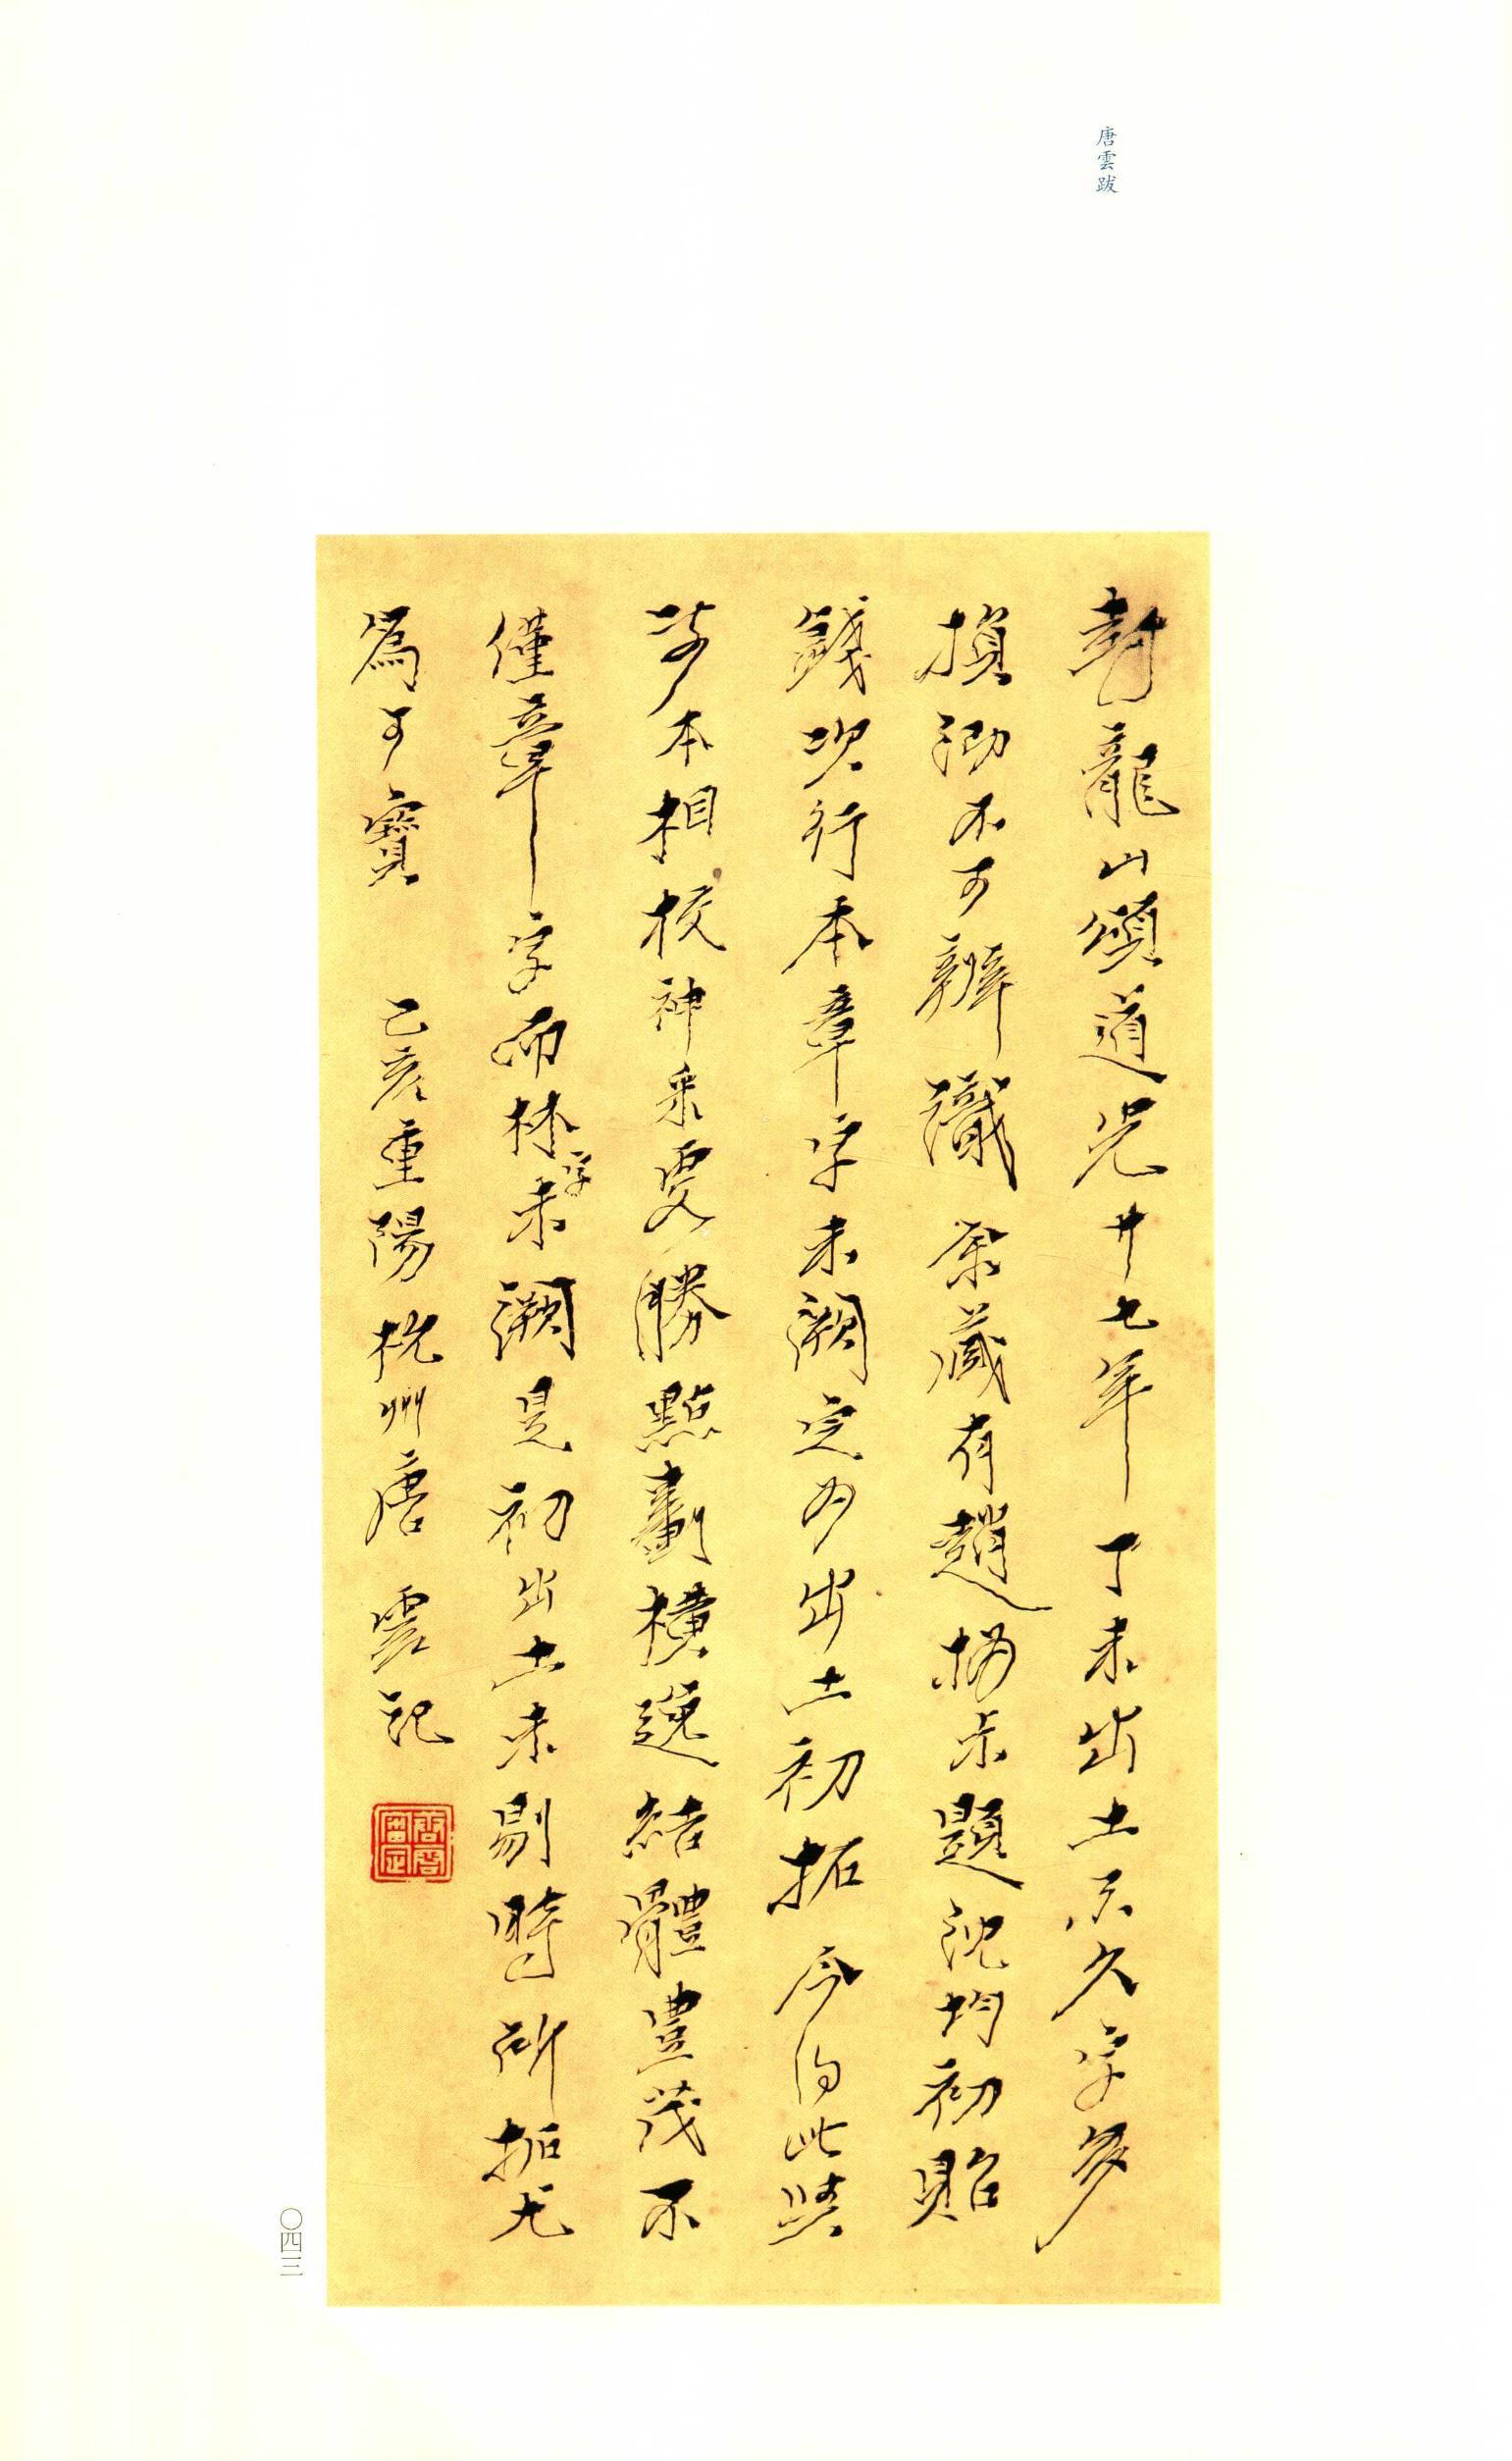 唐雲跋
封龍山頌道光廿七年丁未出土不久字多
損泐不可辨識余藏有趙撝未題沈均初貽
錢次行本章字未泐定為出土初拓今得此與
前本相校神采更勝點劃橫逸結體豊茂不
僅章字而林字未泐是初出土未剔時所拓尤
為可寶 乙亥重陽杭州唐雲記
〇四三